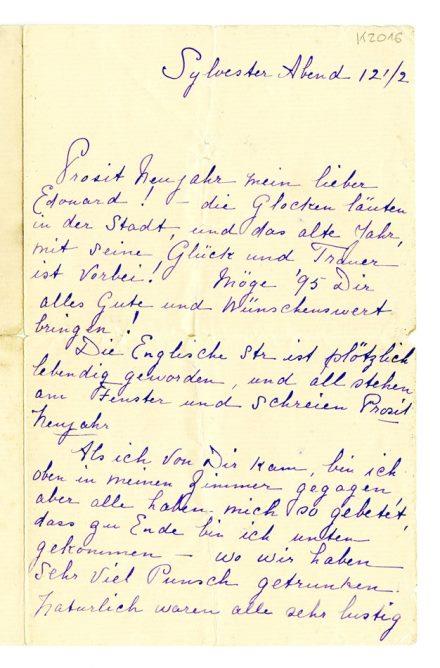 K2016
Sylvester Abend 12 1/2
Prosit Neujahr mein lieber
Edouard! – die Glocken läuten
in der Stadt, und das alte Jahr,
mit seine Glück und Trauer
ist vorbei! Möge '95 Dir
alles Gute und Wünschenswert
bringen!
Die Englische Str ist plötzlich
lebendig geworden, und all stehen
am Fenster und schreien Prosit
Neujahr
Als ich von Dir kam, bin ich
oben in meinen Zimmer gegagen
aber alle haben mich so gebetet,
dass zu Ende bin ich unten
gekommen – wo wir haben
sehr viel Punsch getrunken.
Naturlich waren alle sehr lustig